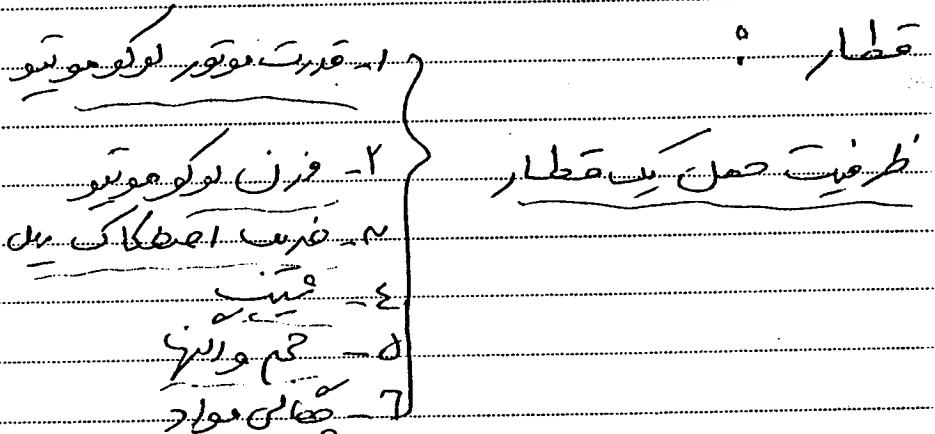 قطار :
ظرفیت حمل یک قطار
۱- قدرت موتور لوکوموتیو
۲- وزن لوکوموتیو
۳- ضریب اصطکاک ریل
۴- شیب
۵- حجم واگنها
۶- چگالی مواد